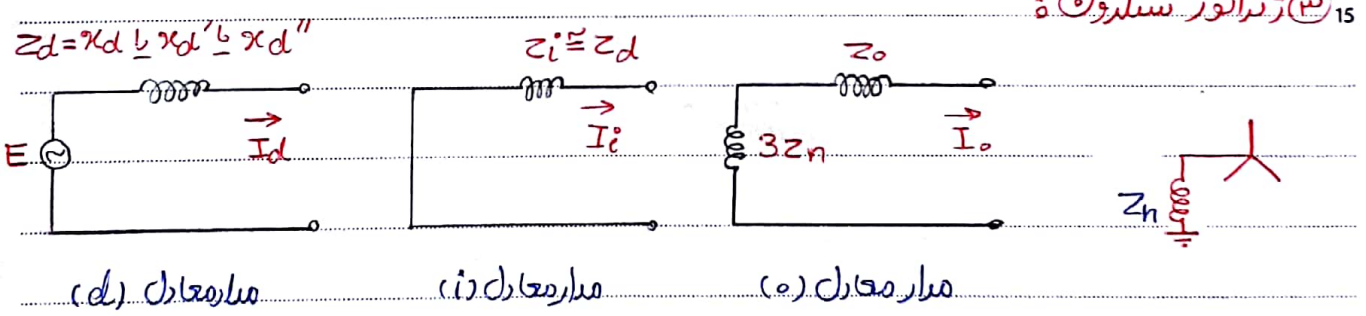 15 ③ ژنراتور سنکرون:
Zd = xd یا xd' یا xd"
Zi ≅ Zd
Z₀
E
Id
Ii
3Zn
I₀
Zn
مدار معادل (d)
مدار معادل (i)
مدار معادل (o)